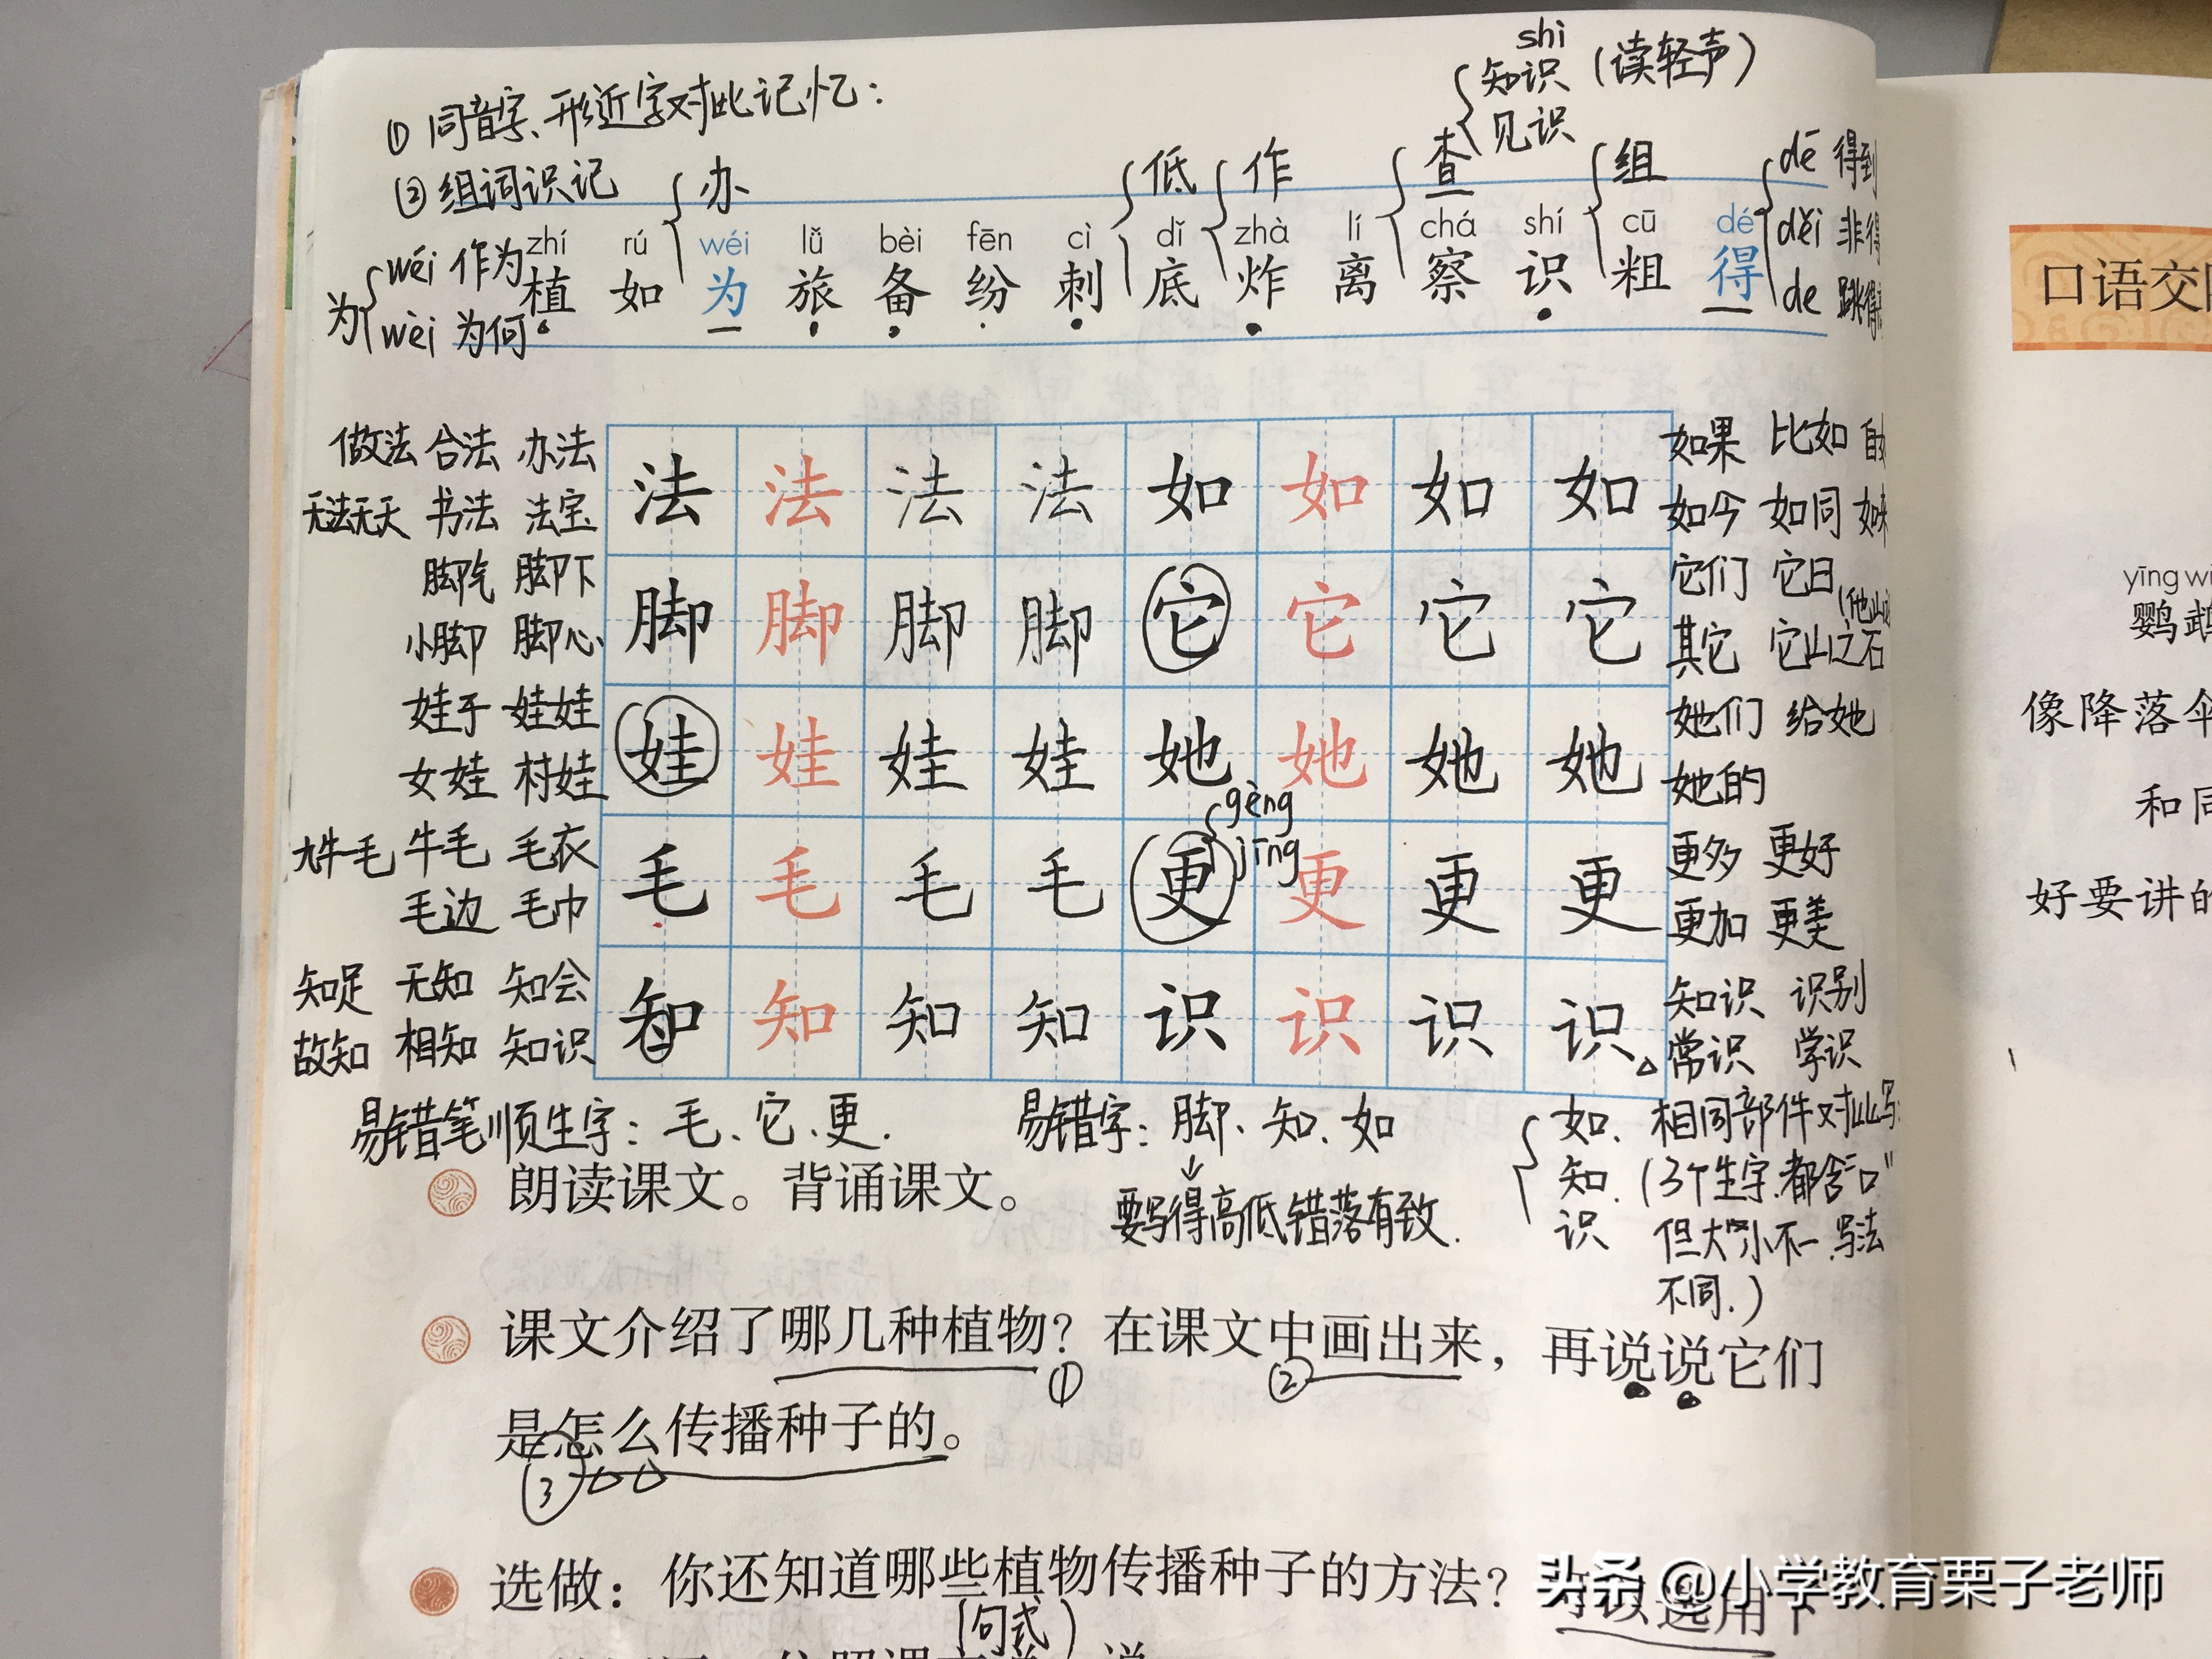 shi
知识（读轻声）
见识
①同音字、形近字对比记忆：
②组词识记
办 低 作 查 组 dé 得到
zhí rú wéi lǚ bèi fēn cì dǐ zhà lí chá shí cū dé
植 如 为 旅 备 纷 刺 底 炸 离 察 识 粗 得
děi 非得
de
为 wéi 作为
wèi 为何
做法 合法 办法
无法无天 书法 法宝
法 法 法 法 如 如 如 如
如果 比如
如今 如同
脚气 脚下
小脚 脚心
脚 脚 脚 脚 它 它 它 它
它们 它日
其它 它山之石
娃子 娃娃
女娃 村娃
娃 娃 娃 娃 她 她 她 她
她们 给她
她的
gèng
jīng
九牛毛 牛毛 毛衣
毛边 毛巾
毛 毛 毛 毛 更 更 更 更
更多 更好
更加 更美
知足 无知 知会
故知 相知 知识
知 知 知 知 识 识 识 识
知识 识别
常识 学识
易错笔顺生字：毛、它、更.
易错字：脚、知、如
要写得高低错落有致.
如、知、识
相同部件对比写
（3个生字.都含"口"
但大小不一.写法
不同.）
朗读课文。背诵课文。
课文介绍了哪几种植物？在课文中画出来，再说说它们
① ②
是怎么传播种子的。
③
选做：你还知道哪些植物传播种子的方法？可以选用下
（句式）
头条 @小学教育栗子老师
口语交
yīng
鹦鹉
像降落伞
和同
好要讲的